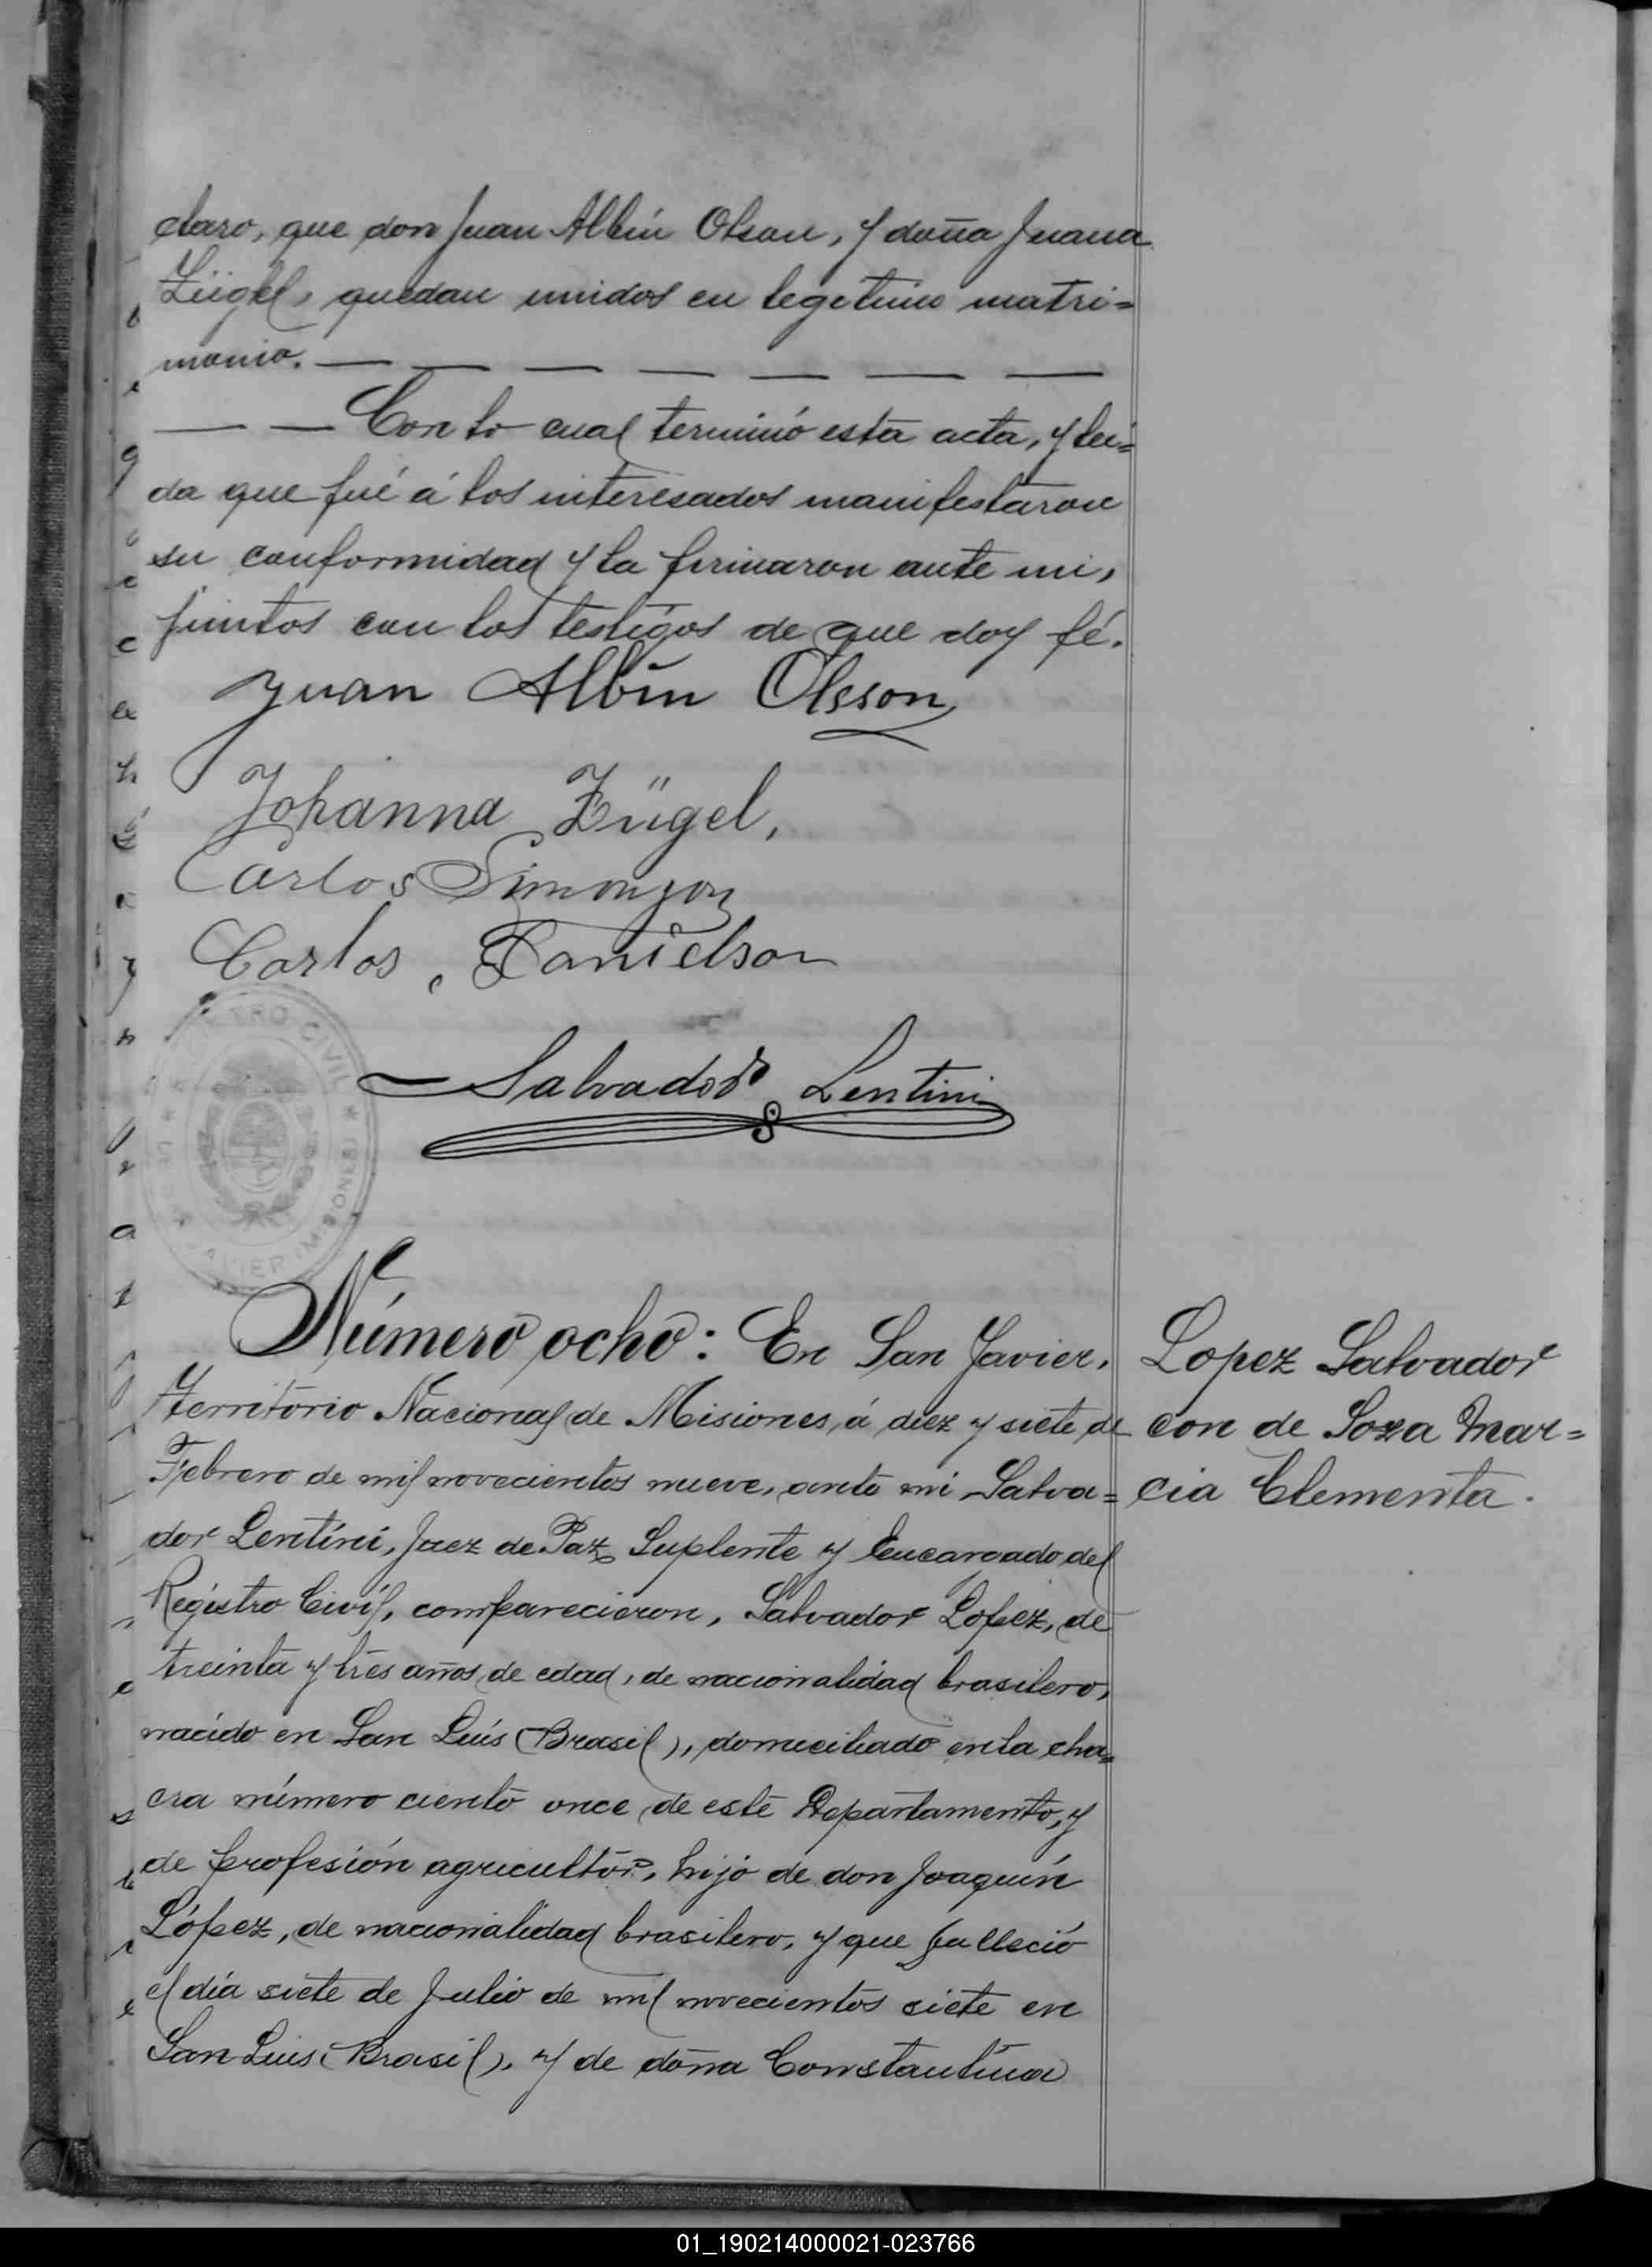 claro, que don Juan Albin Olson, y doña Juana
Zügel, quedan unidos en legitimo matri=
monio. — — — — — — —
— — Con lo cual terminó esta acta, y lei=
da que fué á los interesados manifestaron
su conformidad y la firmaron ante mi,
juntos con los testigos de que doy fé.
Juan Albin Olsson
Johanna Zügel,
Carlos Simonzon
Carlos, Danielson
REGISTRO CIVIL
MISIONES
JAVIER
Salvador Lentini
Número ocho: En San Javier,
Territorio Nacional de Misiones, á diez y siete de
Febrero de mil novecientos nueve, ante mi Salva=
dor Lentini, Juez de Paz Suplente y Encargado del
Registro Civil, comparecieron, Salvador López, de
treinta y tres años de edad, de nacionalidad brasilero,
nacido en San Luís (Brasil), domiciliado en la cha=
cra número ciento once de este Departamento, y
de profesión agricultor, hijo de don Joaquín
López, de nacionalidad brasilero, y que falleció
el día siete de Julio de mil novecientos siete en
San Luis (Brasil), y de doña Constantina
Lopez Salvador
con de Soza Mar=
cia Clementa.
01_190214000021-023766